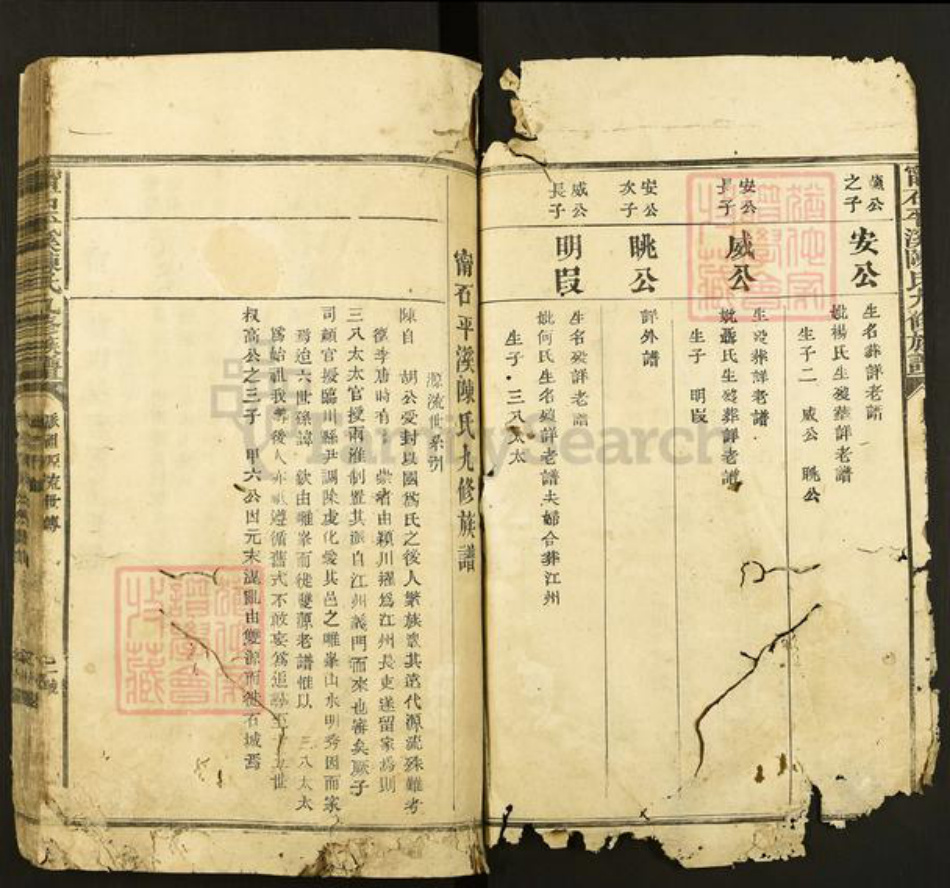 甯石平溪陳氏九修族譜
黃公之子
安公
生名葬詳老譜
妣楊氏生歿葬詳老譜
生子二 威公 眺公
安公長子
威公
生歿葬詳老譜
妣聶氏生歿葬詳老譜
生子 明叚
安公次子
眺公
詳外譜
威公長子
明叚
生名歿詳老譜
妣何氏生名歿詳老譜夫婦合葬江州
生子三八太太
甯石平溪陳氏九修族譜
源流世系引
陳自 胡公受封以國爲氏之後人繁族衆其遠代源流殊難考
徵李唐時有 崇者由穎川擢爲江州長吏遂留家焉則
三八太太官授兩淮制置其派自江州義門而來也審矣厥子
司顧官授臨川縣尹調陳虔化愛其邑之雎峯山水明秀因而家
焉迨六世孫 欽由雎峯而徙雙源老譜惟以 三八太太
爲始祖我等後人亦 遵循舊式不敢妄爲追 世
叔高公之三子 甲六公因元末 亂由雙源而徙石城焉
甯石平溪陳氏九修族譜
源流世